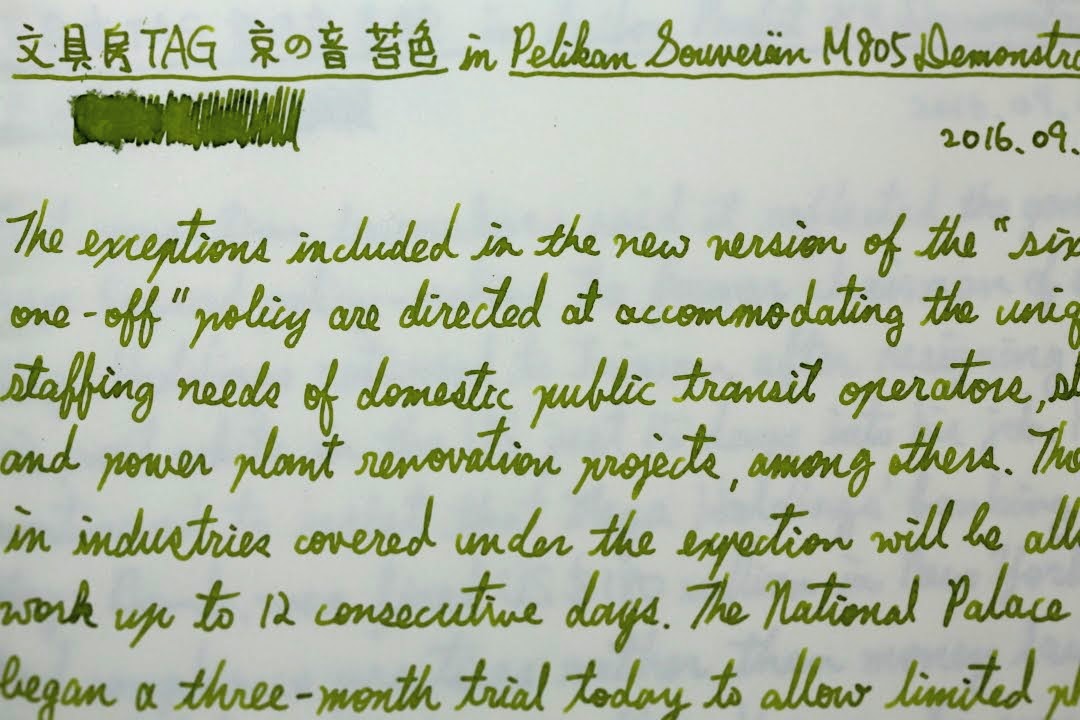 文具房TAG 京の音 苔色 in Pelikan Souverän M805 Demonstra
2016.09.
The exceptions included in the new version of the "six
one-off" policy are directed at accommodating the uniq
staffing needs of domestic public transit operators, st
and power plant renovation projects, among others. Tho
in industries covered under the expection will be all
work up to 12 consecutive days. The National Palace
began a three-month trial today to allow limited ph